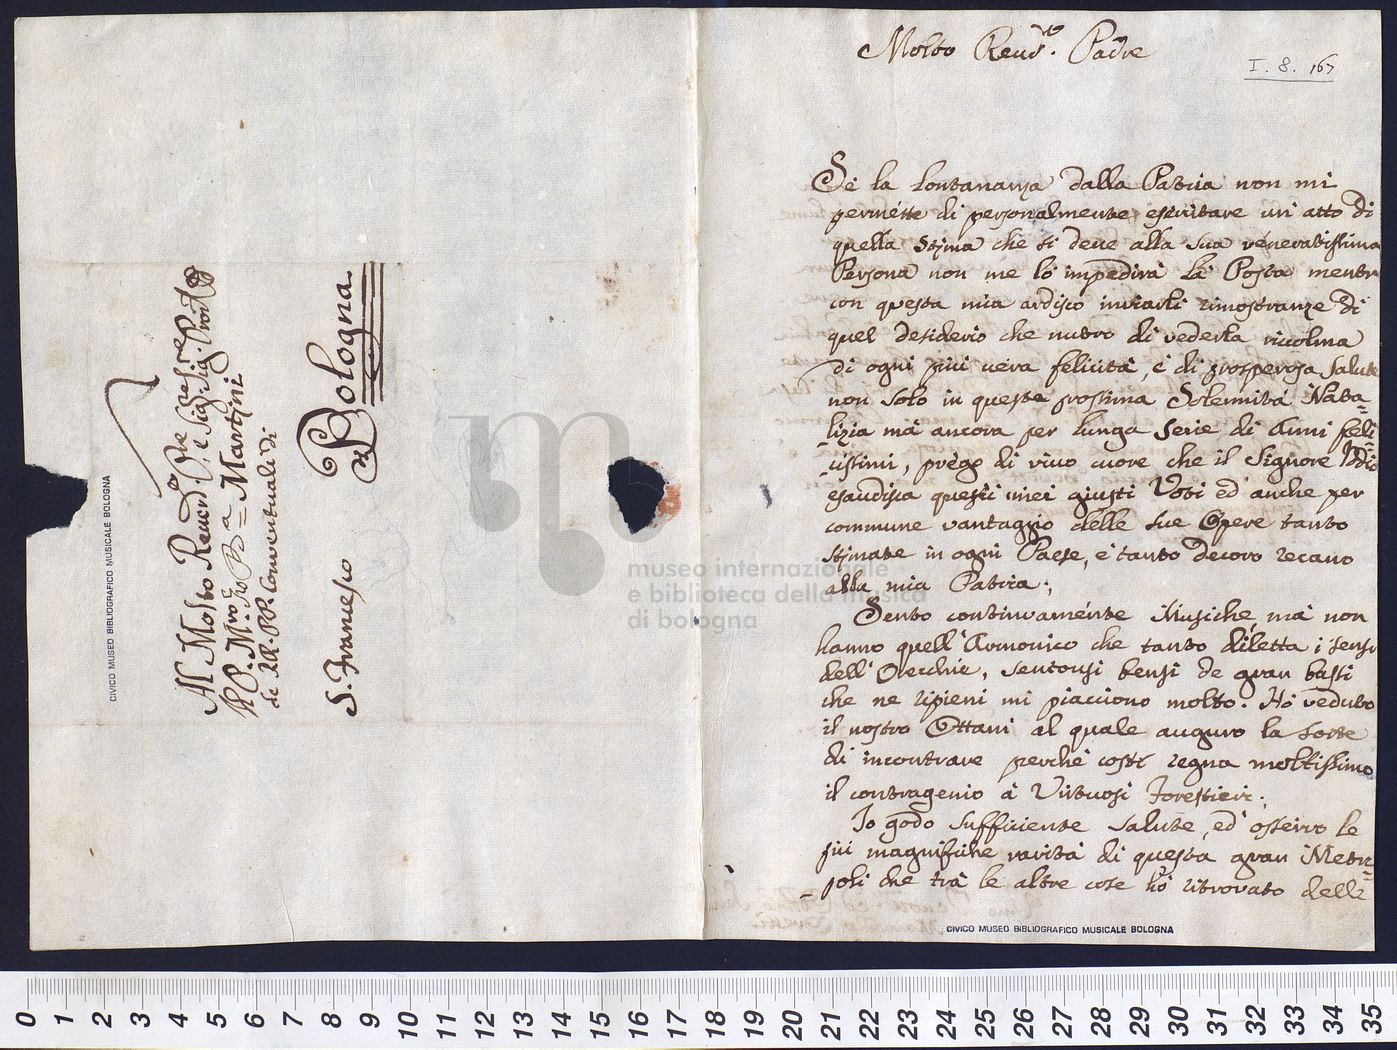 Al Molto Rev.do P.re e Sig. Sig. Pron.
Il P. M.ro Gio. B.a Martini
de RR. PP. Conventuali di
S. Francesco Bologna
CIVICO MUSEO BIBLIOGRAFICO MUSICALE BOLOGNA
Molto Revd.o Padre
I. 8. 167
Se la lontananza dalla Patria non mi
permette di personalmente esercitare un atto di
quella Stima che si deve alla sua veneratissima
Persona non me lo impedirà la Posta mentre
con questa mia ardisco inviarli rimostranze di
quel desiderio che nutro di vederla riccolma
di ogni più vera felicità, e di prosperosa Salute
non solo in questa prossima Solennità Nata-
-lizia mà ancora per lunga serie di Anni feli-
-cissimi, prego di vivo cuore che il Signore Iddio
esaudisca questi miei giusti Voti ed anche per
commune vantaggio delle sue Opere tanto
stimate in ogni Paese, e tanto decoro recano
alla mia Patria;
Sento continuamente Musiche, mà non
hanno quell'Armonico che tanto diletta i sensi
dell'Orecchie, sentonsi bensi de gran bassi
che ne ripieni mi piacciono molto. Hò veduto
il nostro Ottani al quale auguro la sorte
di incontrare perche costì regna moltissimo
il contragenio à Virtuosi Forestieri;
Io godo sufficiente salute, ed osservo le
più magnifiche rarità di questa gran Metro
poli che trà le altre cose hò ritrovato delle
museo internazionale
e biblioteca della musica
di bologna
CIVICO MUSEO BIBLIOGRAFICO MUSICALE BOLOGNA
0 1 2 3 4 5 6 7 8 9 10 11 12 13 14 15 16 17 18 19 20 21 22 23 24 25 26 27 28 29 30 31 32 33 34 35